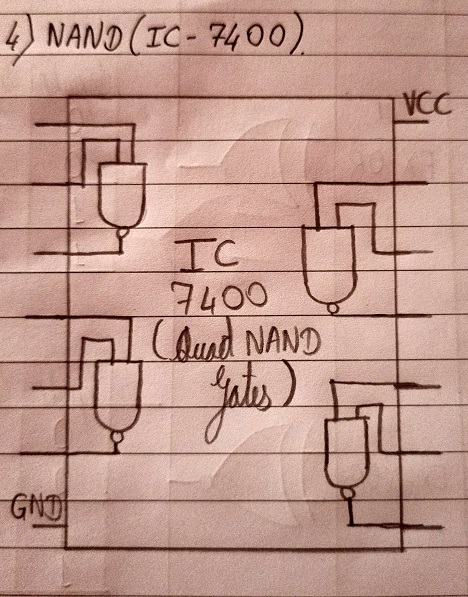 4) NAND (IC - 7400).
VCC
IC
7400
(Quad NAND
gates)
GND